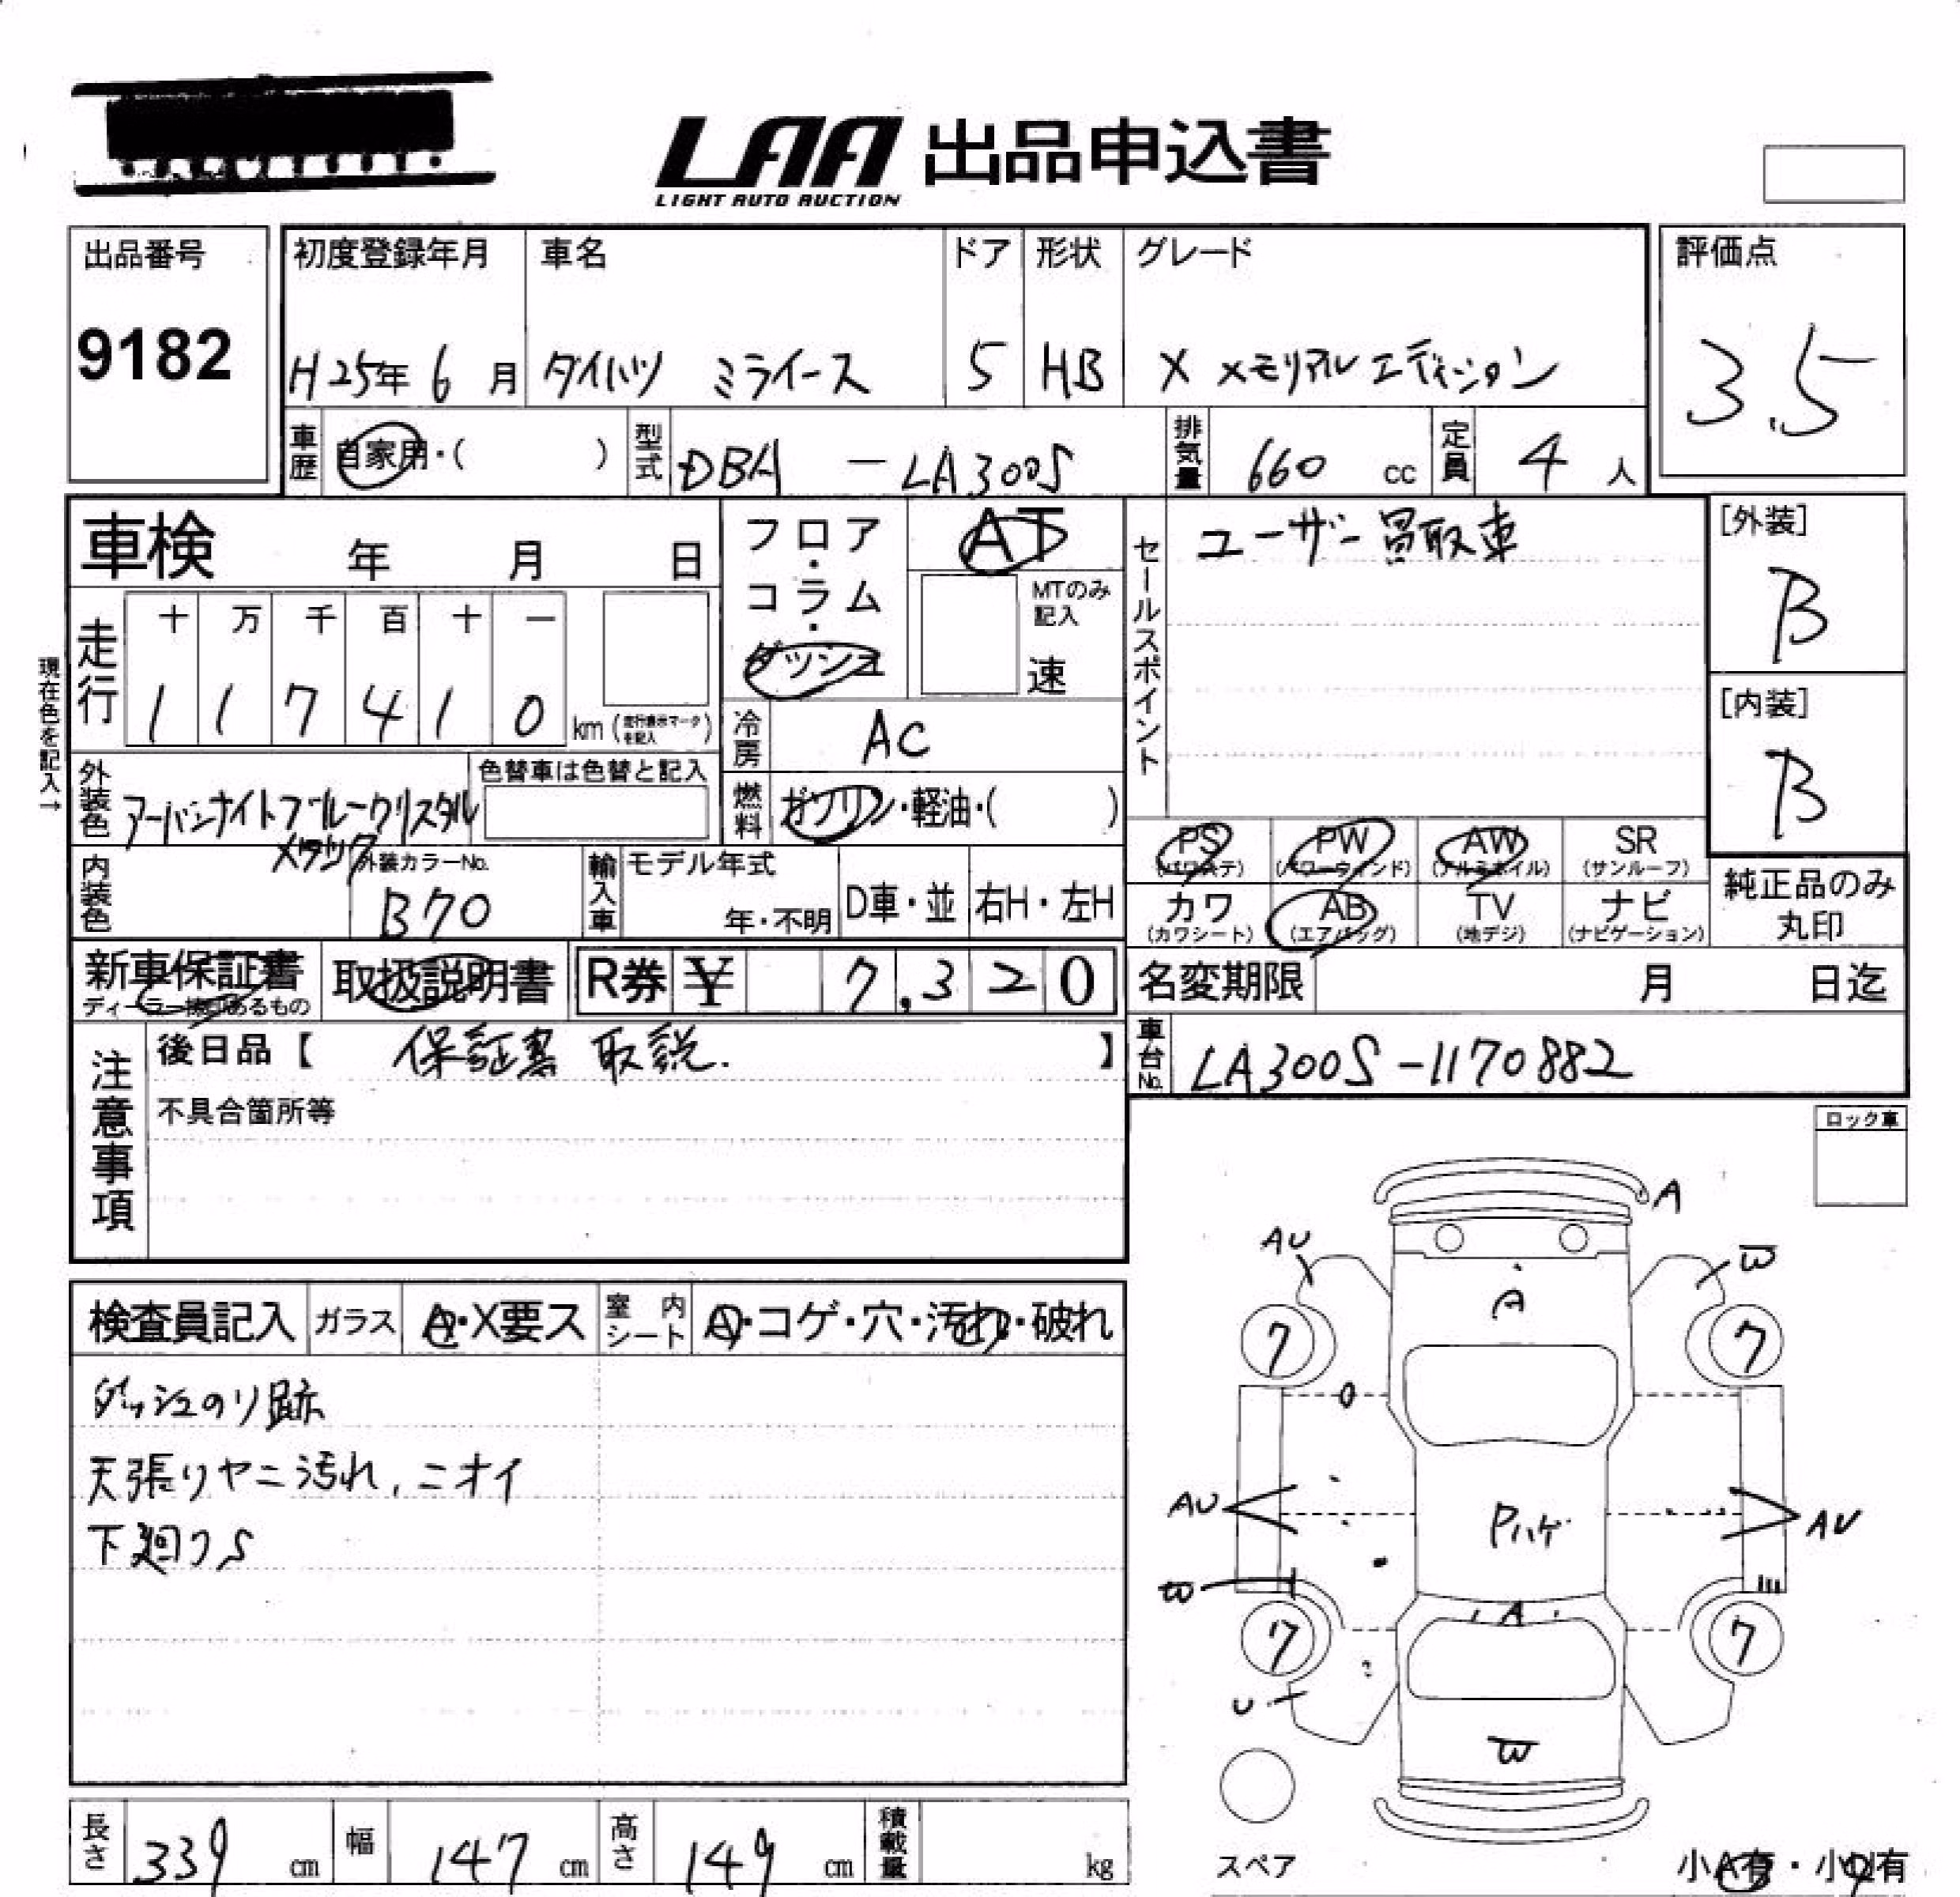 LAA 出品申込書
LIGHT AUTO AUCTION
出品番号
9182
初度登録年月
H25年 6月
車名
ダイハツ ミライース
ドア
5
形状
HB
グレード
X メモリアルエディション
評価点
3.5
車歴
自家用・( )
型式
DBA - LA300S
排気量
660 cc
定員
4 人
車検 年 月 日
フロア・コラム・ダッシュ
AT
MTのみ記入
速
セールスポイント
ユーザー買取車
[外装]
B
[内装]
B
現在色を記入→
走行
十 万 千 百 十 一
1 1 7 4 1 0 km (走行表示マークを記入)
冷房
AC
外装色
アーバンナイトブルークリスタル
メタリック
色替車は色替と記入
燃料
ガソリン・軽油・( )
PS (パワステ)
PW (パワーウインド)
AW (アルミホイル)
SR (サンルーフ)
カワ (カワシート)
AB (エアバッグ)
TV (地デジ)
ナビ (ナビゲーション)
純正品のみ
丸印
内装色
外装カラーNo.
B70
輸入車
モデル年式
年・不明
D車・並
右H・左H
新車保証書
取扱説明書
R券 ¥ 7,320
名変期限 月 日迄
注意事項
後日品【 保証書 取説. 】
不具合箇所等
車台No.
LA300S-1170882
ロック車
検査員記入
ガラス
・X要ス
室内シート
・コゲ・穴・汚れ・破れ
ダッシュのり跡
天張りヤニ汚れ, ニオイ
下廻りS
A
AU
W
A
7
7
AU
Pハゲ
AU
W
A
7
7
U
W
スペア
長さ
339 cm
幅
147 cm
高さ
149 cm
積載量
kg